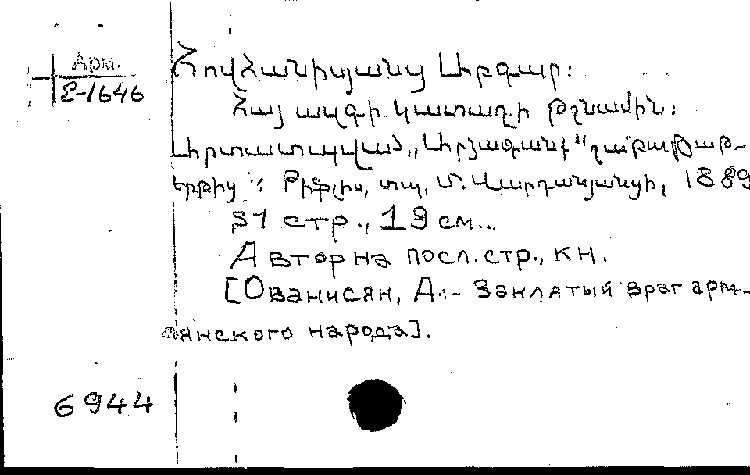 Арм.
2-1646
Յովհանիսյանց Աբգար:
Հայ ազգի կատաղի թշնամին:
Արտատպված „Արձագանք" շաբաթաթ-
երթից: Թիֆլիս, տպ. Մ. Վարդանյանցի, 1889
31 стр., 19 см..
Автор на посл. стр., кн.
[Ованисян, А.- Заклятый враг армя-
янского народа].
6944